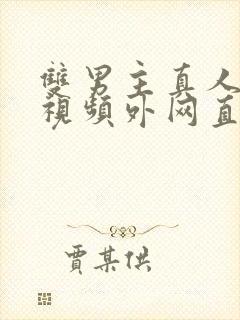 雙男主真人
視頻外网直
賈某供